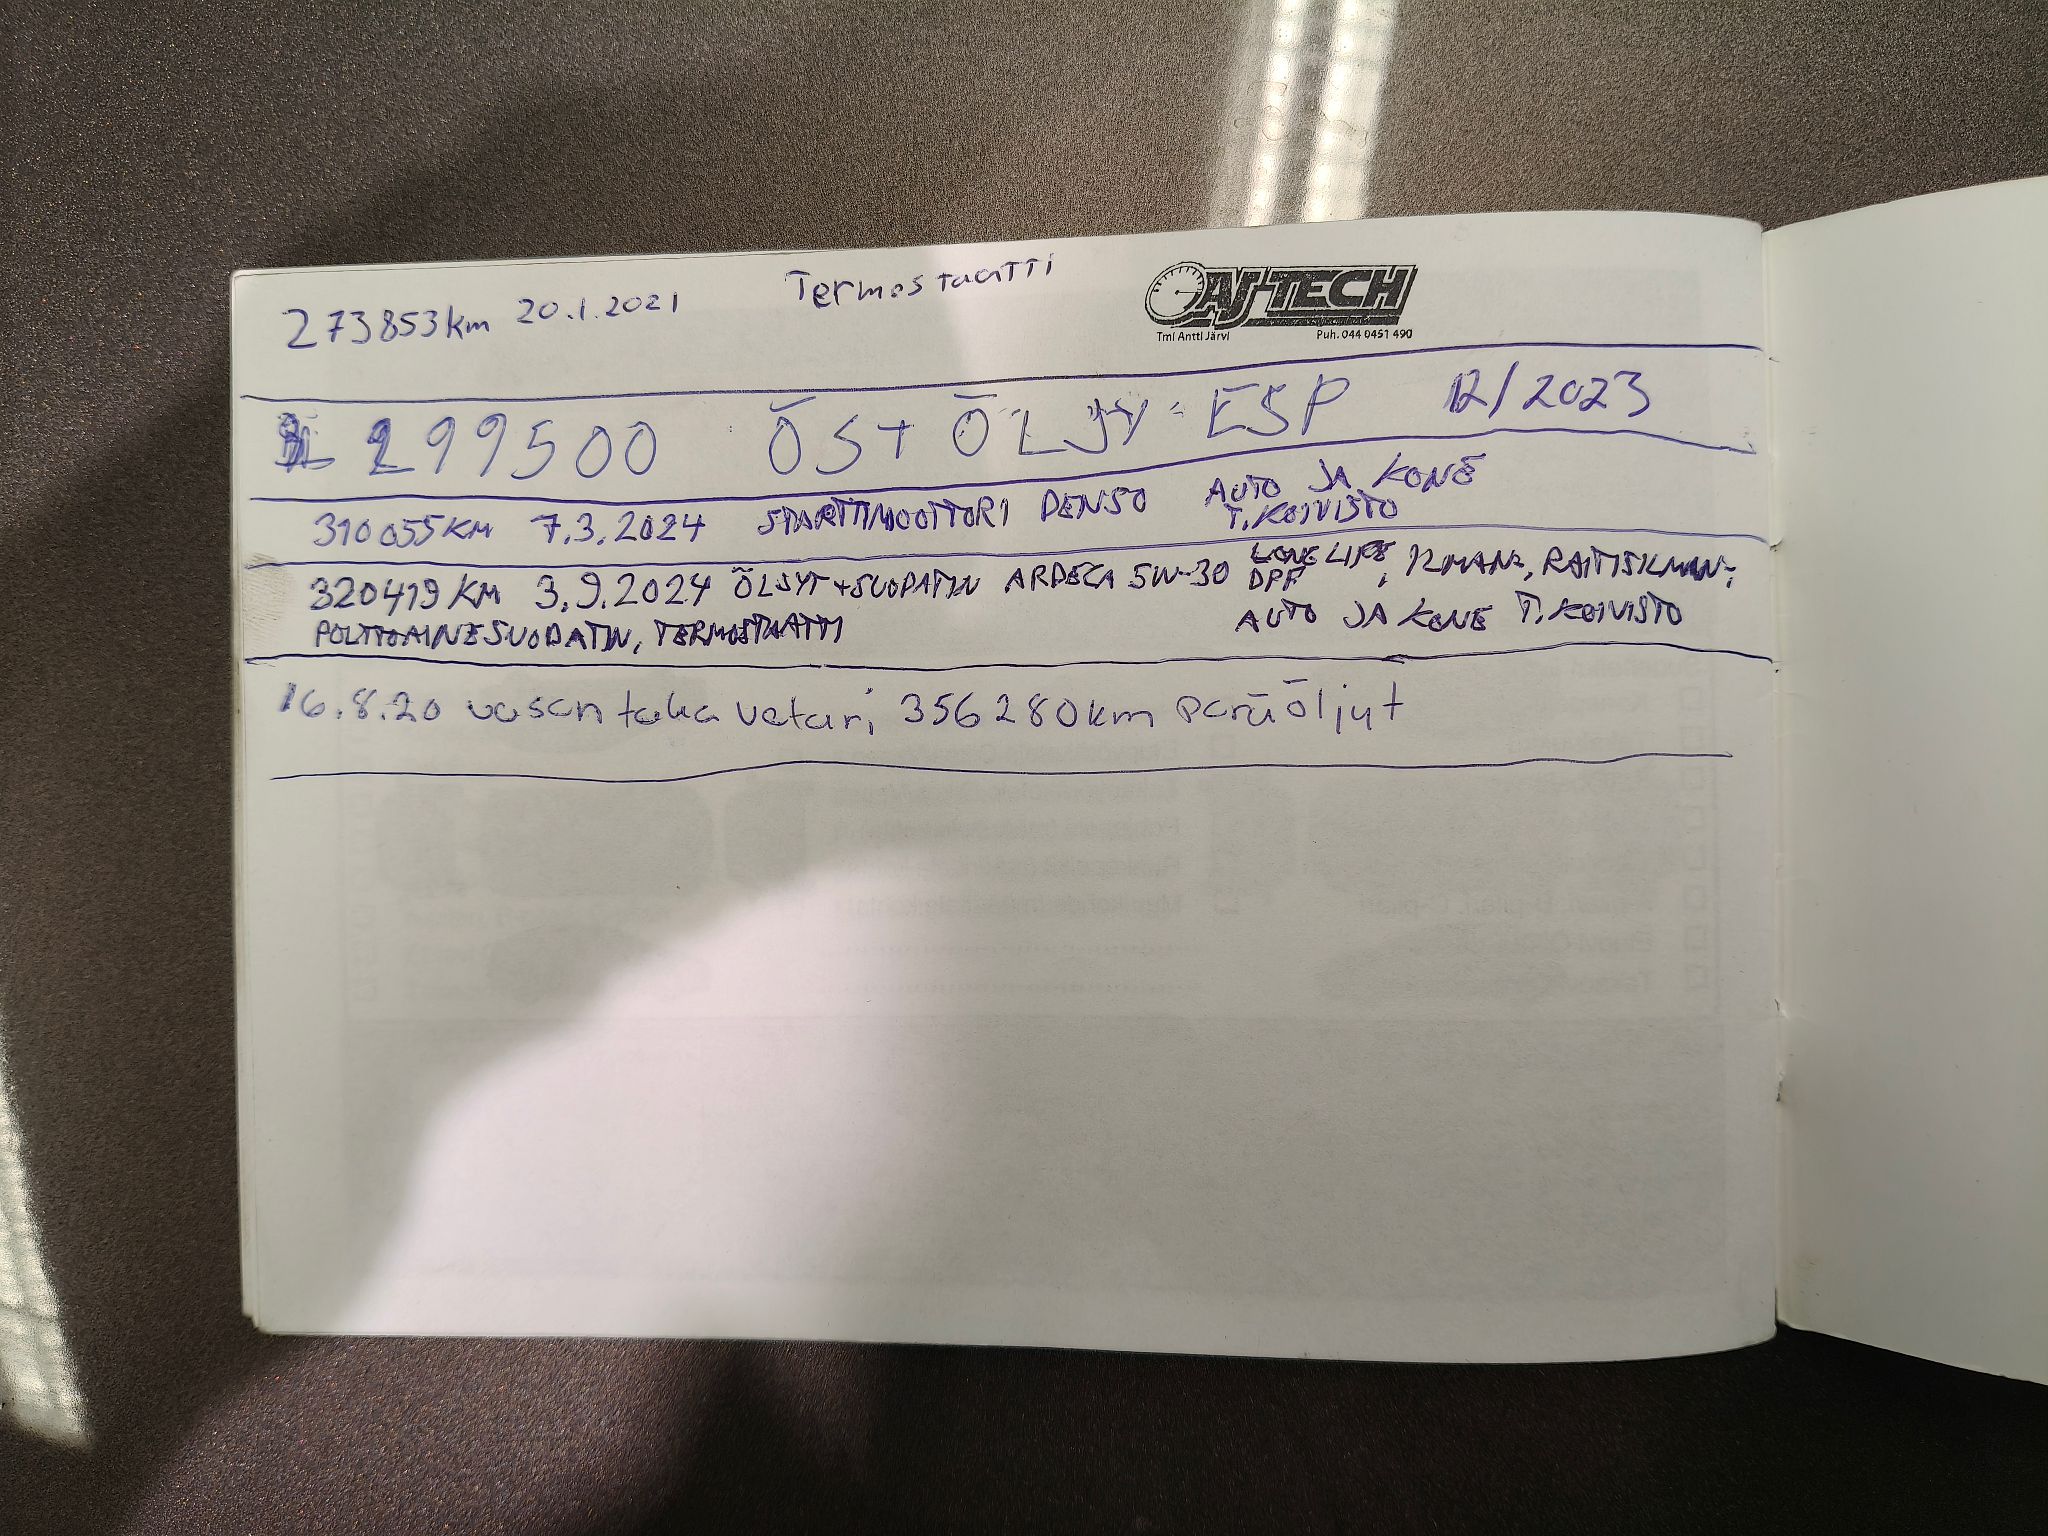 273853km 20.1.2021 Termostaatti AJ-TECH
Tmi Antti Järvi Puh. 044 0451 490
299500 ÖS + ÖLJY ESP 12/2023
310055 KM 7.3.2024 STARTTIMOOTTORI DENSO AUTO JA KONE
T. KOIVISTO
320419 KM 3.9.2024 ÖLJYT + SUODATIN ARDECA 5W-30 LONG LIFE DPF, ILMAN-, RAITISILMAN-,
POLTTOAINESUODATIN, TERMOSTAATTI AUTO JA KONE T. KOIVISTO
16.8.20 vasen taka vetari 356280km peräöljyt